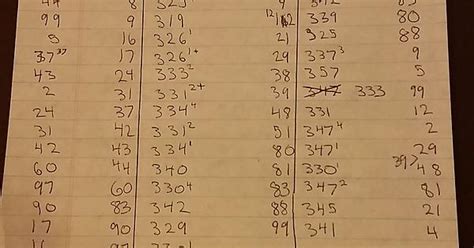 44 8 325 9 342 85
99 9 319 12 112 339 80
5 16 326¹ 21 325 88
37³⁷ 17 326¹⁺ 29 337³ 9
43 24 333² 38 357 5
2 31 331²⁺ 39 333 99
24 37 334⁴ 48 331 12
31 42 331² 51 347⁴ 2
42 43 334¹ 80 347¹ 29
60 44 340 81 330¹ 39> 48
97 60 330⁴ 83 347² 81
90 83 342 88 345 21
17 90 329 99 341 4